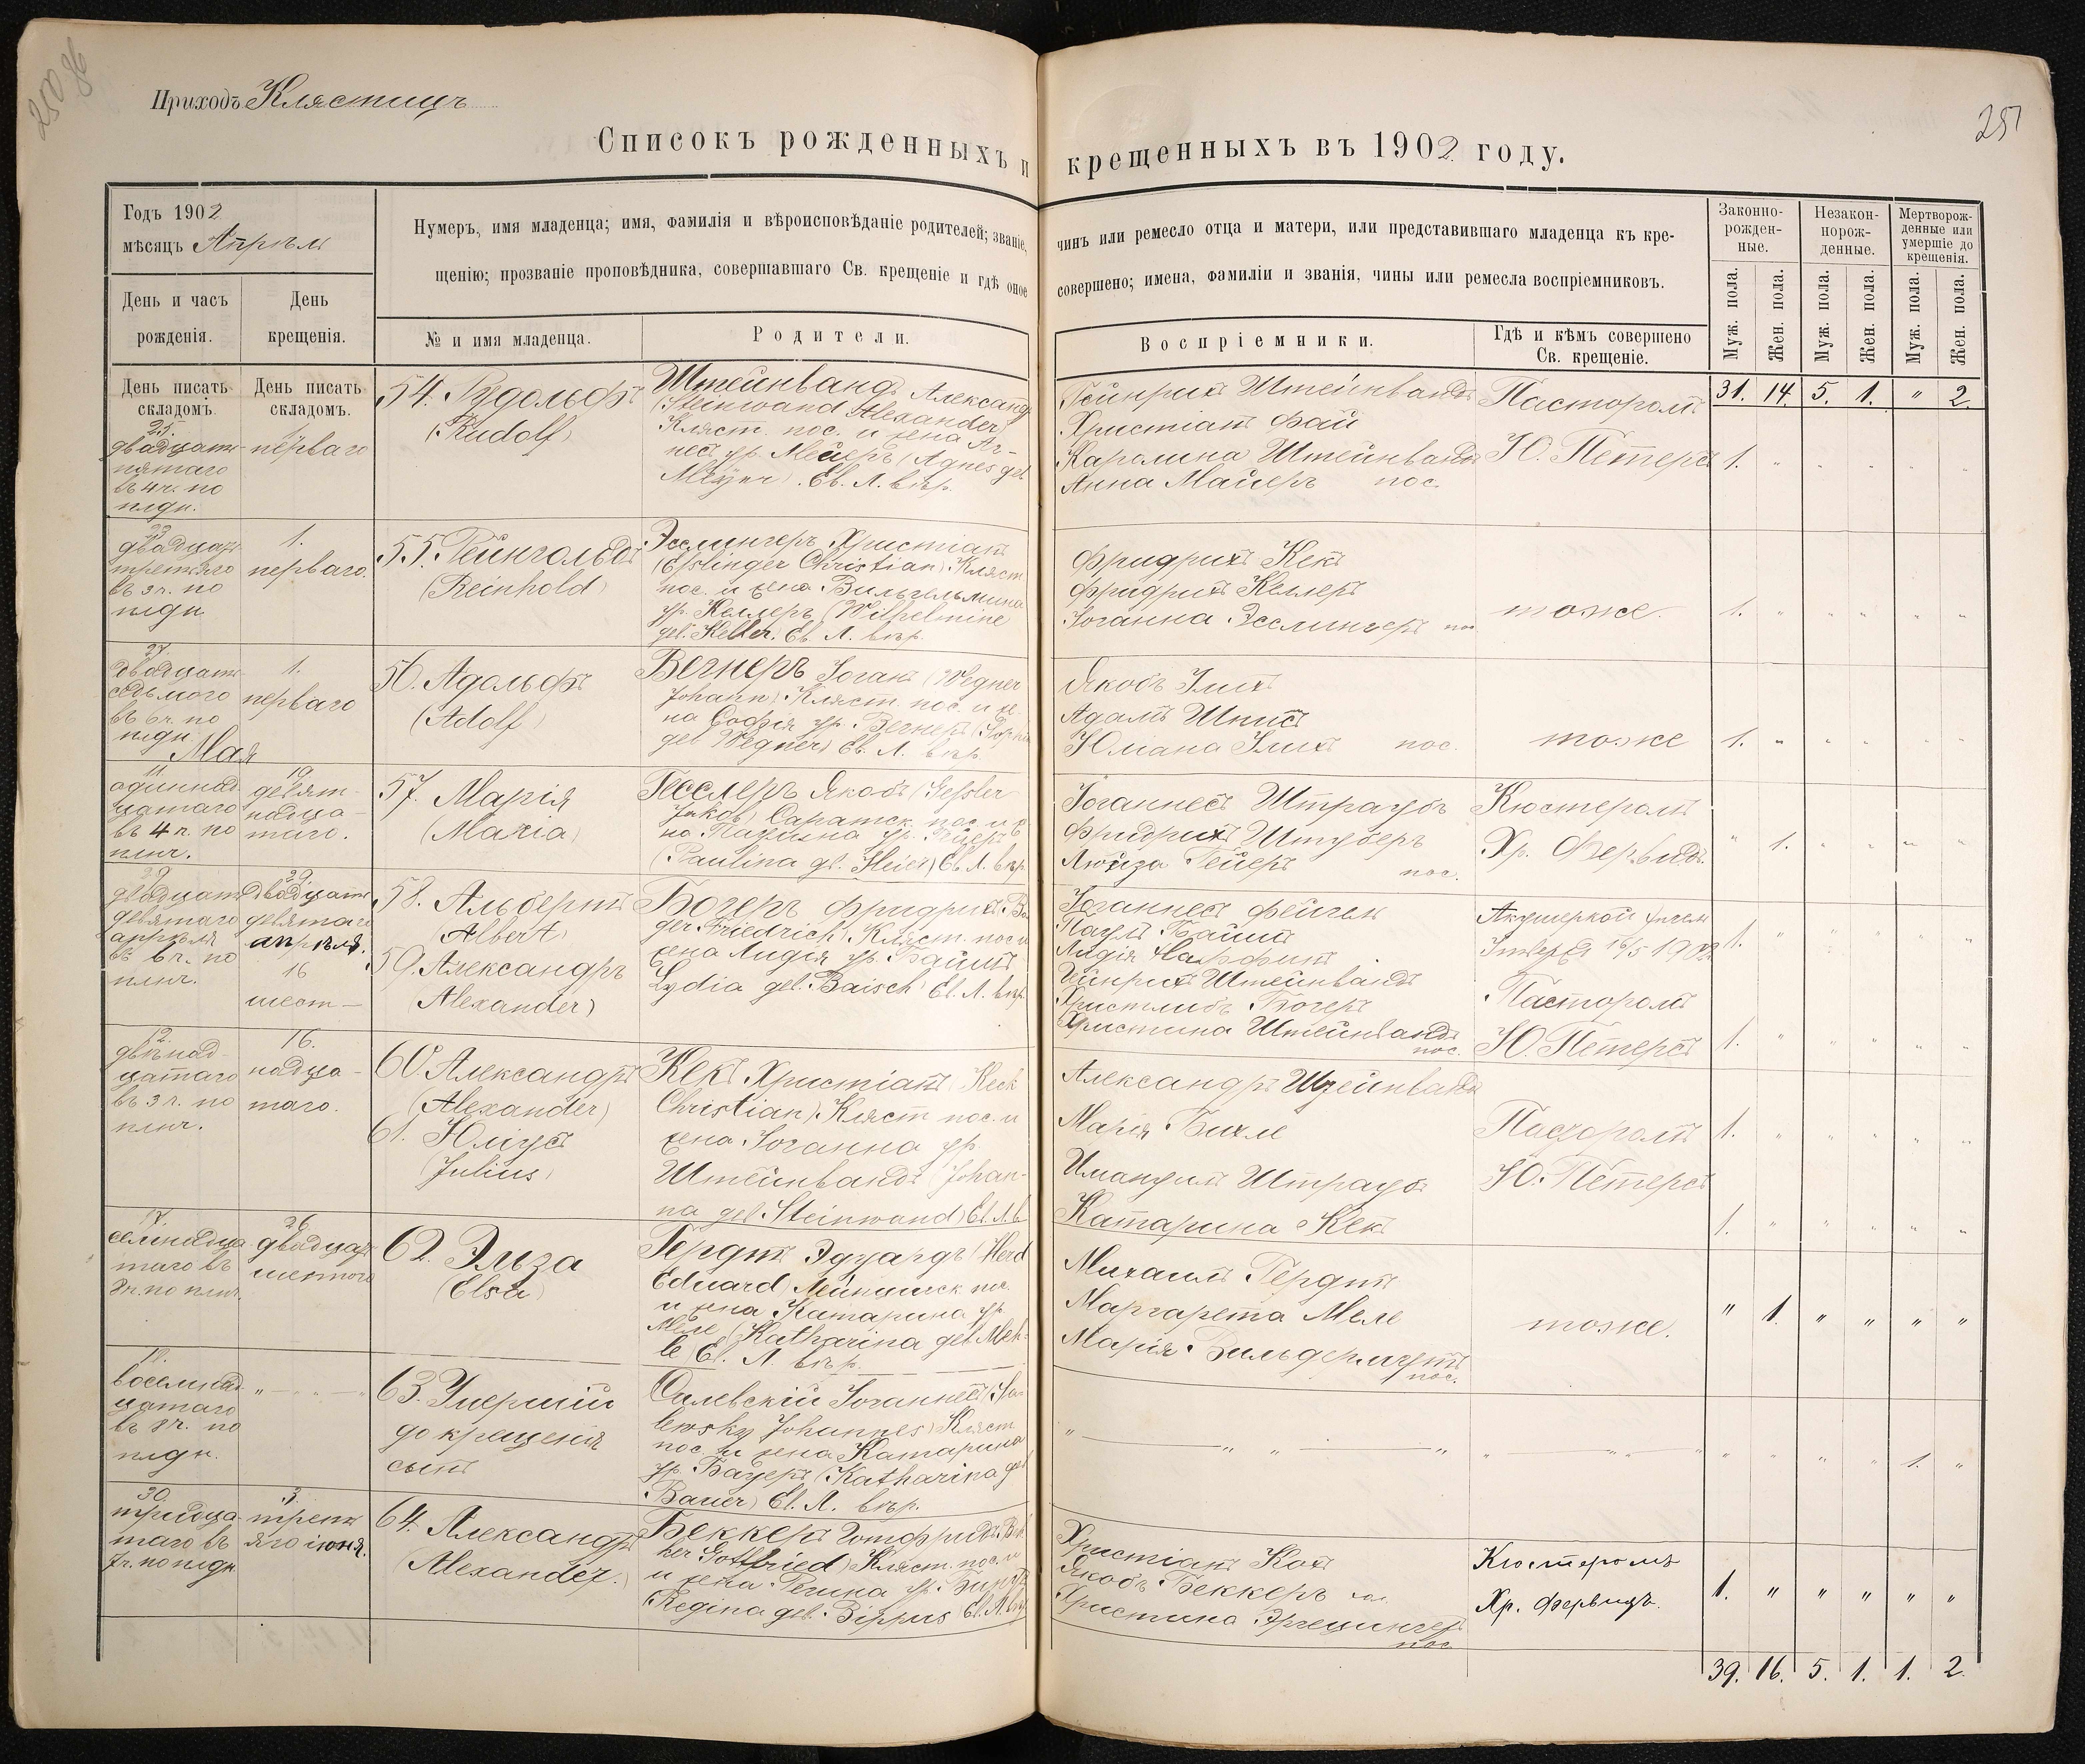 250 об
251
Приходъ Клястицъ
Списокъ рожденныхъ и крещенныхъ въ 1902 году.
Годъ 1902
мѣсяцъ Апрѣль
Нумеръ, имя младенца; имя, фамилія и вѣроисповѣданіе родителей; званіе, чинъ или ремесло отца и матери, или представившаго младенца къ кре-
щенію; прозваніе проповѣдника, совершавшаго Св. крещеніе и гдѣ оное совершено; имена, фамиліи и званія, чины или ремесла воспріемниковъ.
Законно-
рожден-
ные.
Незакон-
норож-
денные.
Мертворож-
денные или
умершіе до
крещенія.
День и часъ
рожденія.
День
крещенія.
№ и имя младенца.
Родители.
Воспріемники.
Гдѣ и кѣмъ совершено
Св. крещеніе.
Муж. пола.
Жен. пола.
Муж. пола.
Жен. пола.
Муж. пола.
Жен. пола.
День писать
складомъ.
День писать
складомъ.
31. 14. 5. 1. " 2.
25.
двадцать
пятаго
въ 4 ч. по
плдн.
1.
перваго
54. Рудольфъ
(Rudolf)
Штейнвандъ Александ.
(Steinwand Alexander)
Кляст. пос. и жена Аг-
несъ ур. Мейеръ (Agnes geb.
Meyer). Ев. Л. вѣр.
Гейнрихъ Штейнвандъ
Христіанъ Фай
Каролина Штейнвандъ
Анна Майеръ пос.
Пасторомъ
Ю. Петерсъ
1. " " " " "
23
двадцать
третьяго
въ 3 ч. по
плдн
1.
перваго.
55. Рейнгольдъ
(Reinhold)
Эсслингеръ Христіанъ
(Esslinger Christian) Кляст.
пос. и жена Вильгельмина
ур. Келлеръ (Wilhelmine
geb. Keller) Ев. Л. вѣр.
Фридрихъ Кекъ
Фридрихъ Келлеръ
Іоганна Эсслингеръ пос.
тоже.
1. " " " " "
27.
двадцать
седьмого
въ 6 ч. по
плдн.
1.
перваго
56. Адольфъ
(Adolf)
Вегнеръ Іоганъ (Wegner
Johann) Кляст. пос. и же-
на Софія ур. Вегнеръ (Sophie
geb Wegner) Ев. Л. вѣр.
Якобъ Улих
Адамъ Шпитъ
Юліана Улих пос.
тоже
1. " " " " "
Мая
11.
одиннад
цатаго
въ 4 ч. по
плнч.
19.
девят-
надца-
таго.
57. Марія
(Maria)
Гесслеръ Якобъ (Gessler
Jakob) Саратск. пос. и же
на Паулина ур. Гейеръ
(Paulina geb. Heier) Ев. Л. вѣр.
Іоганнесъ Штраубъ
Фридрихъ Штуберъ
Люиза Гейеръ
пос.
Кюстеромъ
Хр. Фервидъ.
" 1. " " " "
29
двадцать
девятаго
апрѣля
въ 6 ч. по
плнч.
29
двадцать
девятаго
апрѣля.
16
шест-
58. Альбертъ
(Albert)
59. Александръ
(Alexander)
Богеръ Фридрихъ (Bo
ger Friedrich) Кляст. пос. и
жена Лидія ур. Байшъ
Lydia geb. Baisch) Ев. Л. вѣр.
Іоганнесъ Фейген
Пауль Байшъ
Лидія
Гейнрихъ Штейнвандъ
Христлибъ Богеръ
Христина Штейнвандъ
пос.
Акушеркой
16/5 1902
Пасторомъ
Ю. Петерсъ
1. " " " " "
1. " " " " "
12.
двѣнад-
цатаго
въ 3 ч. по
плнч.
16.
надца-
таго.
60. Александръ
(Alexander)
61. Юліусъ
(Julius)
Кекъ Христіанъ (Keck
Christian) Кляст пос. и
жена Іоганна ур.
Штейнвандъ (Johan-
na geb. Steinwand) Ев. Л. в.
Александръ Штейнвандъ
Марія Бихле
Имануилъ Штраубъ
Катарина Кекъ
Пасторомъ
Ю. Петерсъ
1. " " " " "
1. " " " " "
17.
семнадца
таго въ
8 ч. по плнч.
26
двадцать
шестого
62. Эльза
(Elsa)
Гердтъ Эдуардъ (Herd
Eduard) Лейпцигск пос.
и жена Катарина ур.
Меле (Katharina geb. Meh-
le) Ев. Л. вѣр.
Михаилъ Гердтъ
Маргарета Меле
Марія Вильдермутъ
пос.
тоже.
" 1. " " " "
18.
восемнад
цатаго
въ 8 ч. по
плдн.
63. Умершій
до крещенія
сынъ
Салевскій Іоганнесъ (Sa-
lewsky Johannes) Кляст
пос. и жена Катарина
ур. Бауеръ (Katharina geb
Bauer) Ев. Л. вѣр.
" " " " 1. "
30.
тридца
таго въ
7 ч. по плдн
3.
треть
яго іюня.
64. Александръ
(Alexander.)
Беккеръ Готфридъ (Bek
ker Gottfried) Кляст. пос. и
и жена Регина ур. Бипусъ
(Regina geb. Bippus) Ев. Л. вѣр.
Христіанъ Кохъ
Якобъ Беккеръ
Христина
пос.
Кюстеромъ
Хр. Фервидъ.
1. " " " " "
39. 16. 5. 1. 1. 2.